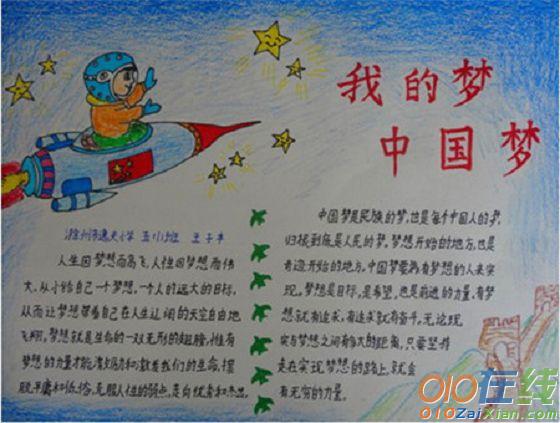 我的梦
中国梦
逸夫小学 五(1)班 王子丰
人生因梦想而高飞,人性因梦想而伟
大,从小给自己一个梦想,一个人的远大的目标,
从而让梦想带着自己在人生辽阔的天空自由地
飞翔,梦想就是生命的一双无形的翅膀,惟有
梦想的力量才能激励和激发我们的生命,摆
脱平庸和低俗,克服人性的弱点,走向优秀和杰出。
中国梦是民族的梦,也是每个中国人的梦,
归根到底是人民的梦。梦想开始的地方,也是
奇迹开始的地方。中国梦要靠有梦想的人来实
现。梦想是目标,是希望,也是前进的力量,有梦
想就有追求,有追求就有奋斗。无论现
实与梦想之间有多大的距离,只要坚持
走在实现梦想的路上,就会
有无穷的力量。
010在线
010ZaiXian.com